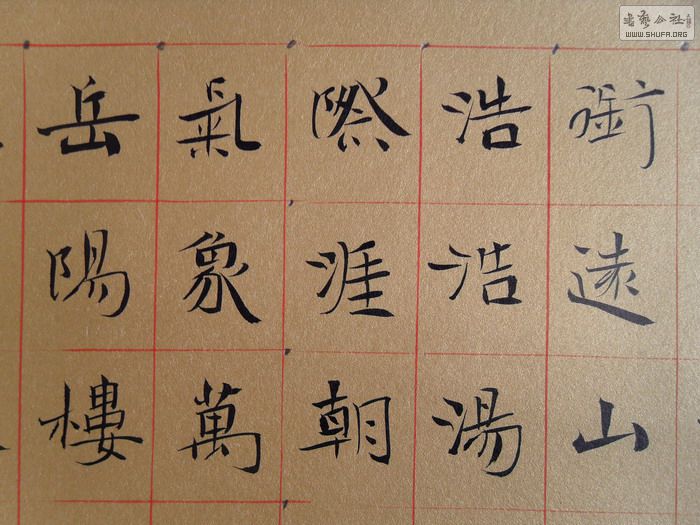 銜遠山
浩浩湯
際涯朝
氣象萬
岳陽樓
WWW.SHUFA.ORG